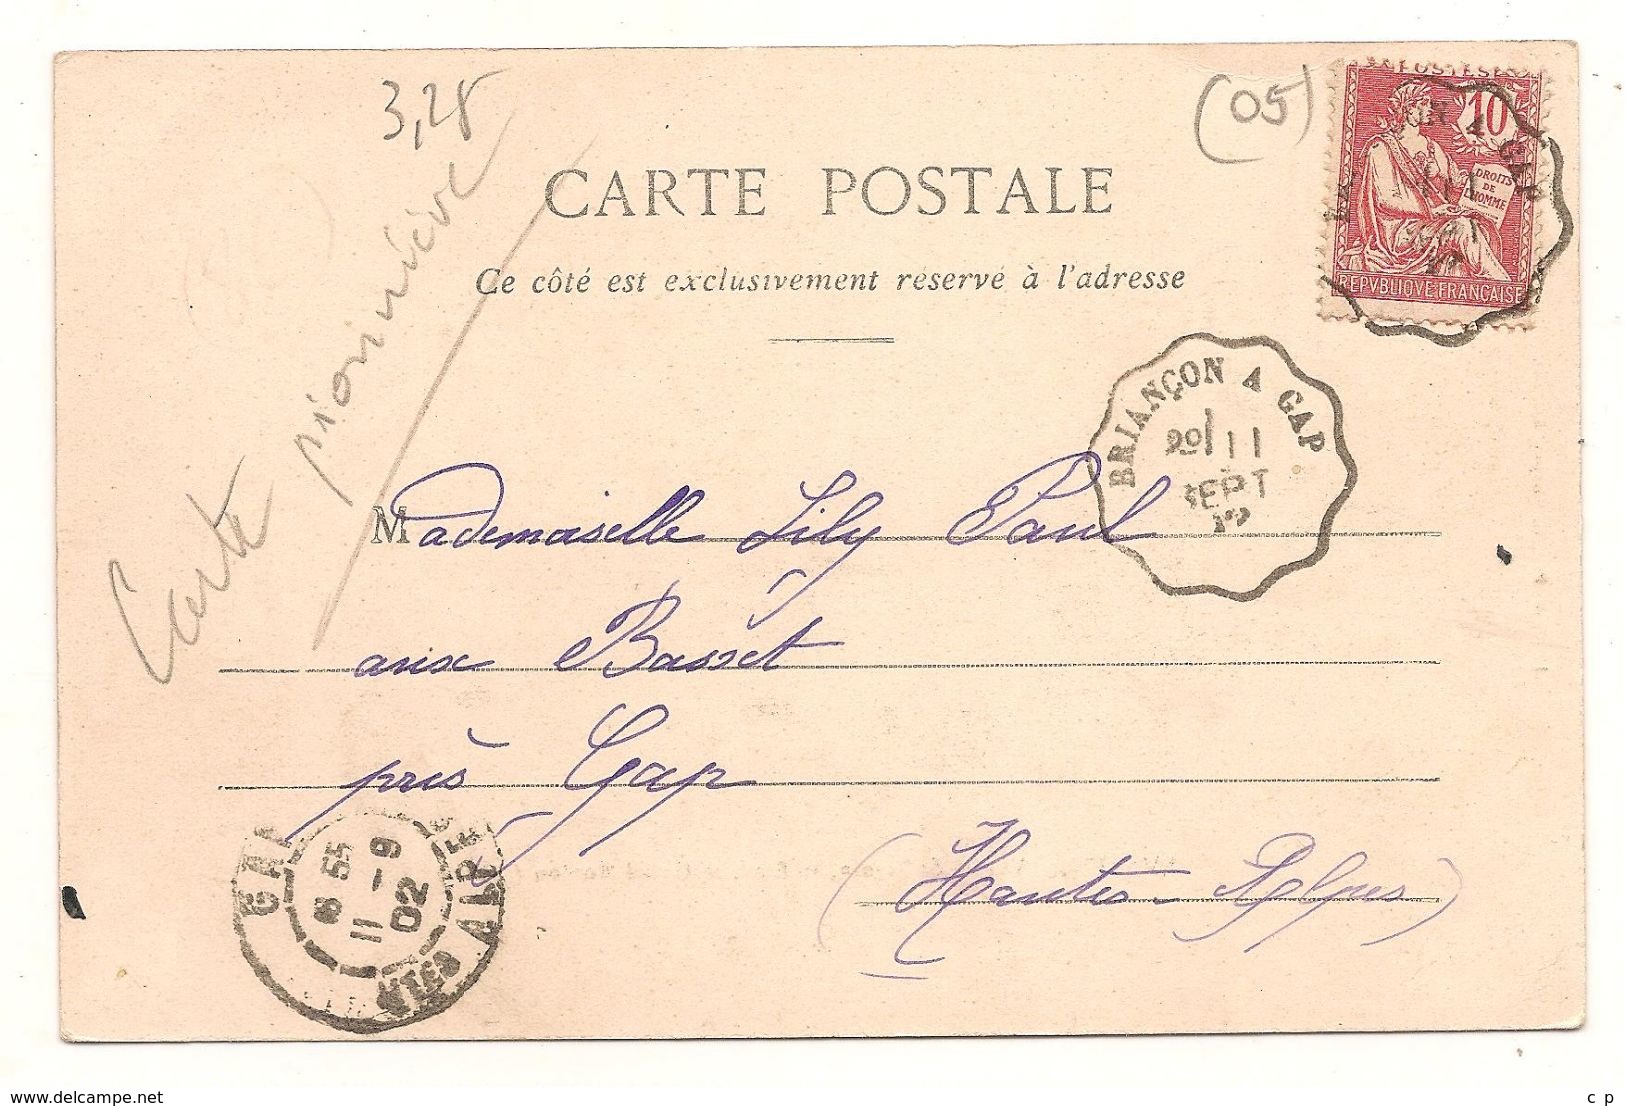 3,28
(05)
Carte pionnière
CARTE POSTALE
Ce côté est exclusivement réservé à l'adresse
POSTES
10
DROITS
DE
L'HOMME
REPVBLIQVE FRANÇAISE
A GAP
BRIANÇON A GAP
11
SEPT
Mademoiselle Lily Paul
aux Basset
près Gap
(Hautes-Alpes)
GAP
8 55
11 -9
02
HTES ALPES
www.delcampe.net
c p